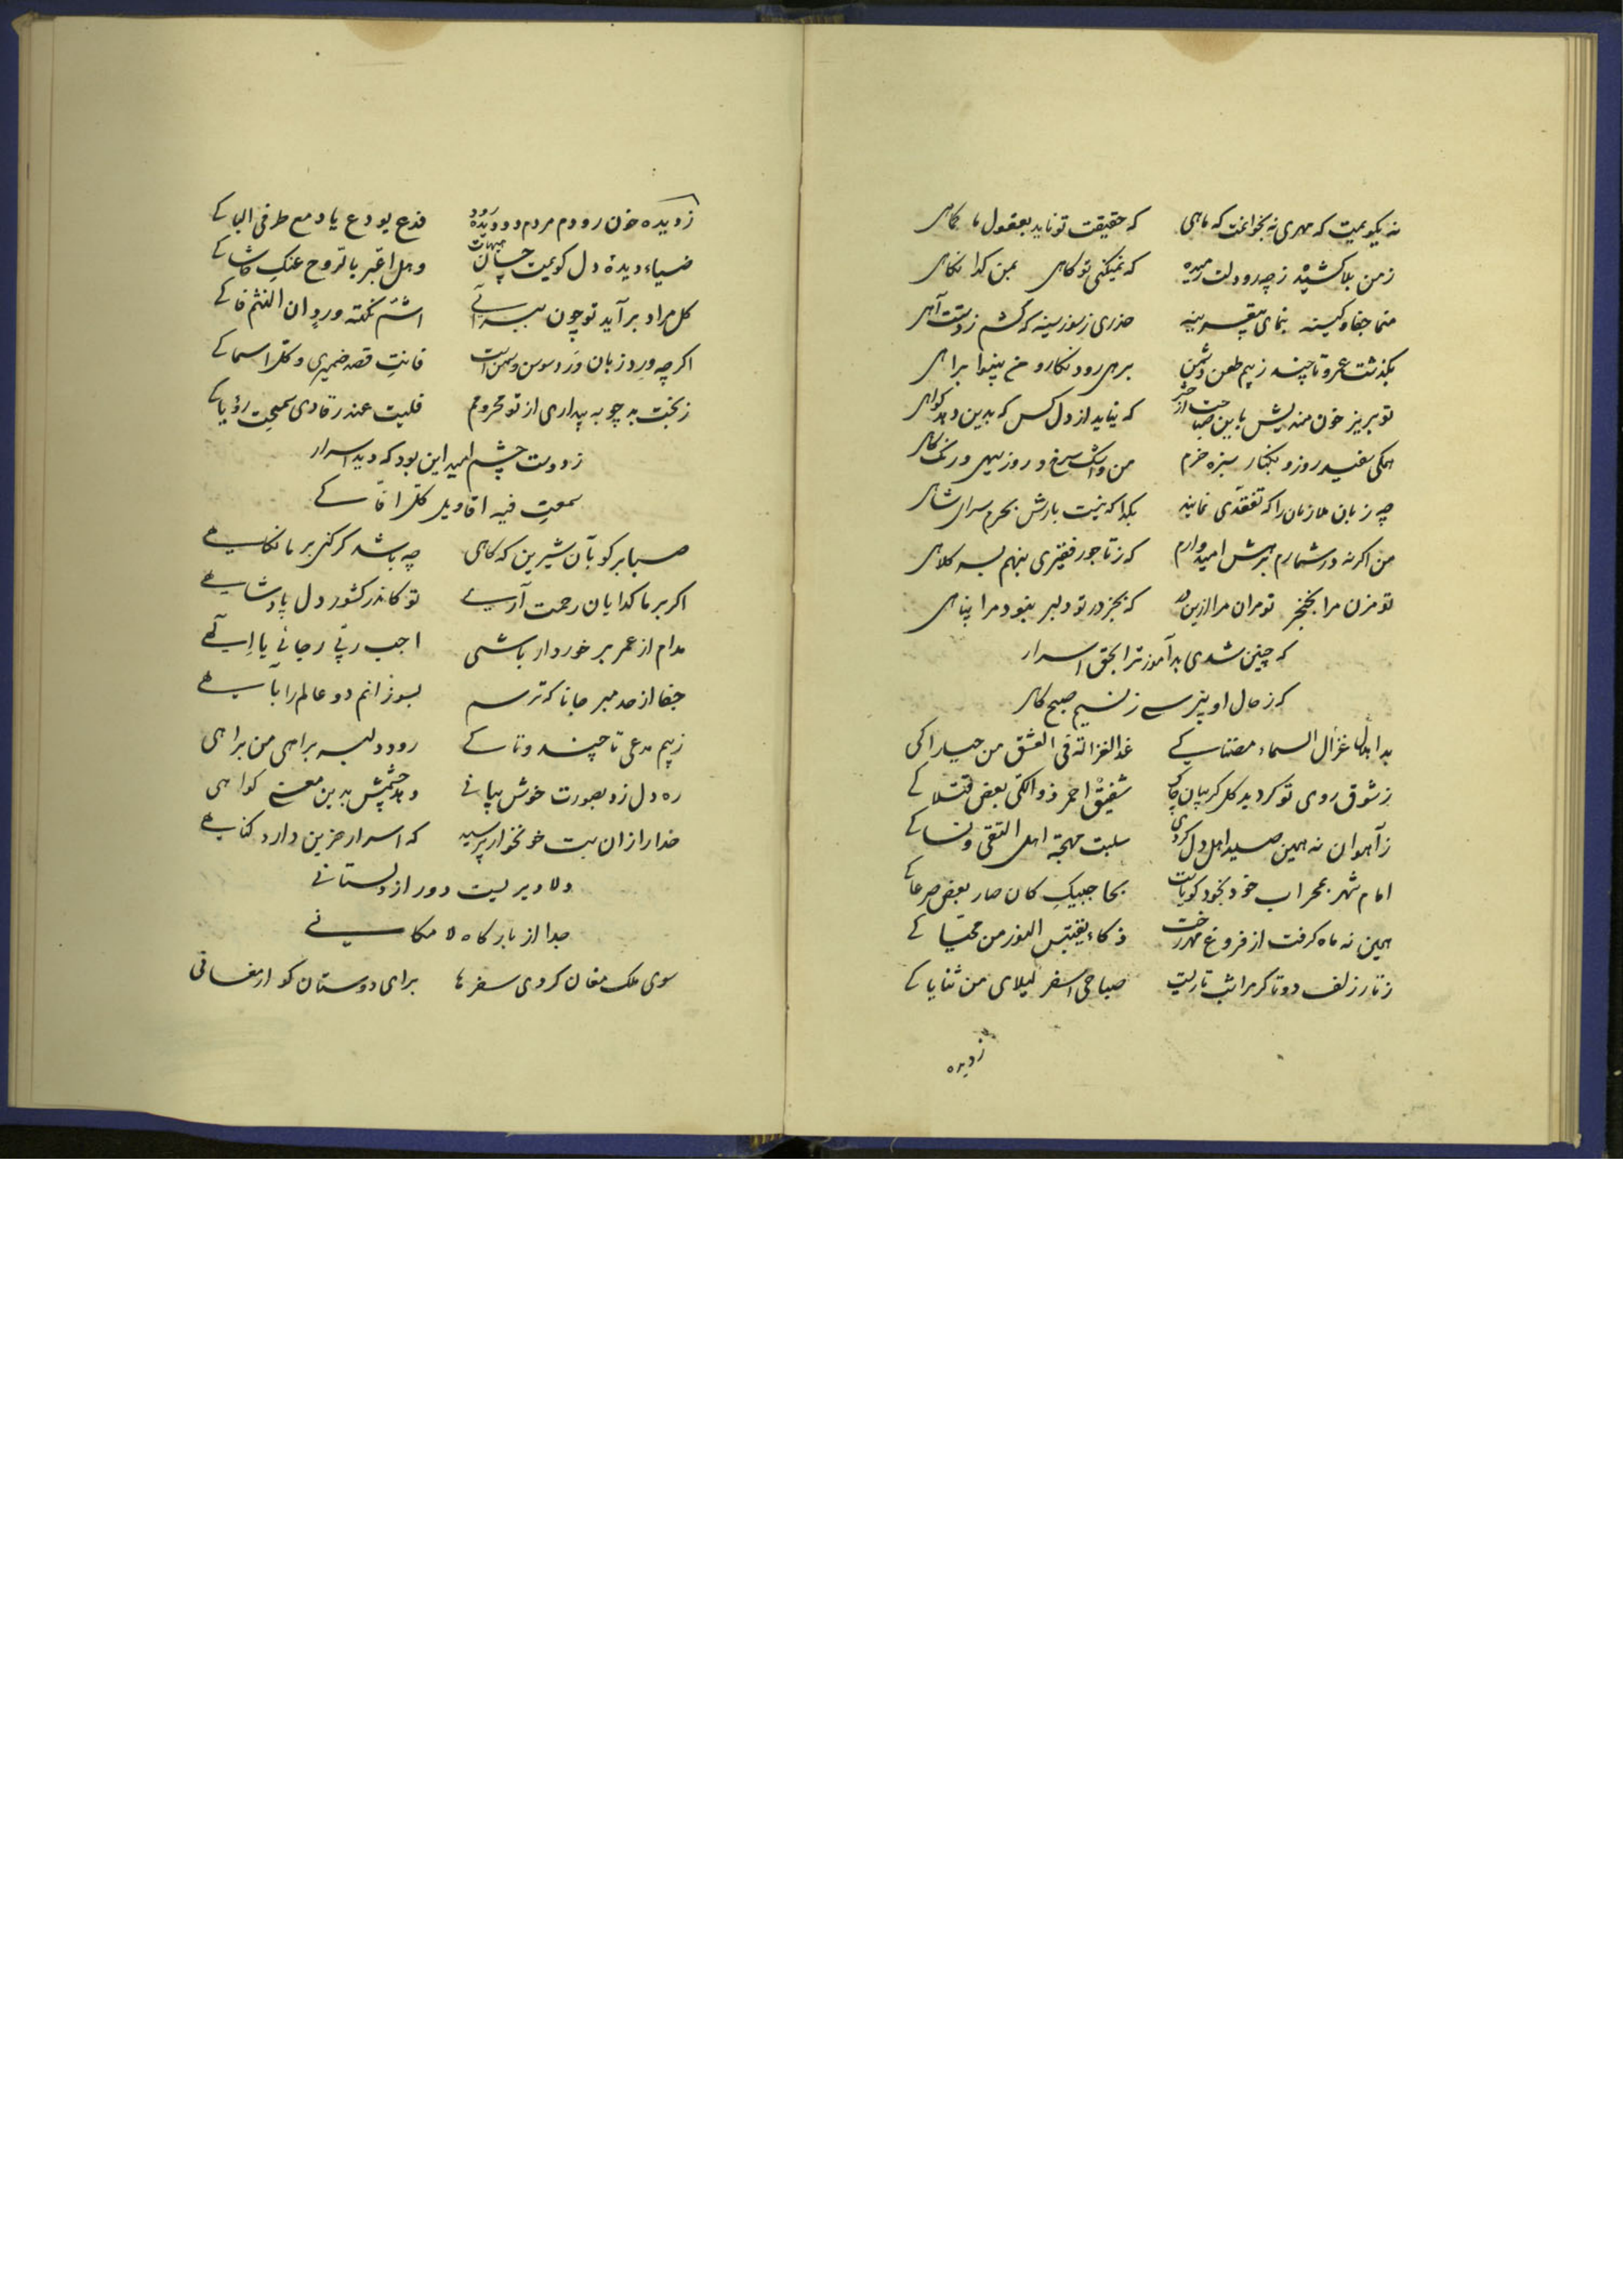 نه بگویمیت که مهری نه بخوانمت که ماهی که حقیقت تو ناید بعقول ما کماهی
زمن بلا کشیده ز چه رو دلت رمیده که نمیکنی تو کاهی بمن کدا نکاهی
منما جفا و کینه بنمای بیقرینه حذری ز سوز سینه که کشم ز دستت آهی
بگذشت عمر و تا چند ز بیم طعن دشمن برهی رود نکار و من بینوا براهی
تو بریز خون مندیش باین صباحت از حشر که نیاید از دل کس که بدین دهد کواهی
همکی سفید روز و بکنار سبزه خرم من و اشک سرخ و روز سیهی و رنک کاهی
چه زبان ملازمان را که تفقدی نمایند بکدا که نیست بارش بحرم سرای شاهی
من اگر نه در شمارم برهش امیدوارم که ز تاجور فقیری بنهم بسر کلاهی
تو مزن مرا بخنجر تو مران مرا ازین در که بجز در تو دلبر نبود مرا پناهی
که چنین شدی بدآموز ترا بحق اسرار
که ز حال او بپرسی ز نسیم صبح کاهی
بدا بدا غزال السماء مضناکی غدا الغزالة فی العشق من حیاراکی
ز شوق روی تو کردید کل کریبان چاک شقیق احمر ذو الکی بعض قتلاکی
ز آهوان نه همین صید اهل دل کردی سلبت مهجة اهل التقی و نساکی
امام شهر بمحراب خود بخود کوبات بحاجبیک کان صار بعض صرعاکی
همین نه ماه کرفت از فروغ مهر رخت ذکاء یقتبس النور من محیاکی
ز تار زلف دوتا کر مرا شب تاریست صباحی اسفر لیلای من ثنایاکی
ز دیده
ز دیده خون رودم مردم دو دیده رود فدع یودع یا دمع طرفی الباکی
ضیاء دیدهٔ دل کویمیت چسان هیهات و هل اغبر بالروح عنک حاشاکی
کل مراد برآید تو چون ببر آئی اشم نکته ورد ان النثم فاکی
اگر چه ورد زبان ورد و سوسن و سمن است فانت قصد ضمیری و کل اسماکی
ز بخت به چو به بیداری از تو محرومم فلیت عند رقادی سمحت رؤیاکی
ز دوست چشم امید این بود که دید اسرار
سمعت فیه اقاویل کل افاکی
صبا بر کو بآن شیرین که کاهی چه باشد کر کنی بر ما نکاهی
اگر بر ما کدایان رحمت آری تو کاندر کشور دل پادشاهی
مدام از عمر برخوردار باشی اجب ربی رجائی یا الهی
جفا از حد مبر جانا که ترسم بسوزانم دو عالم را بآهی
ز بیم مدعی تا چند و تا کی رود دلبر براهی من براهی
ره دل زد بصورت خوش بیانی دهد چشمش بدین معنی کواهی
خدا را زان بت خونخوار پرسید که اسرار حزین دارد کناهی
دلا دیریست دور از دلستانی
جدا از بارکاه لا مکانی
سوی ملک مغان کردی سفرها برای دوستان کو ارمغانی